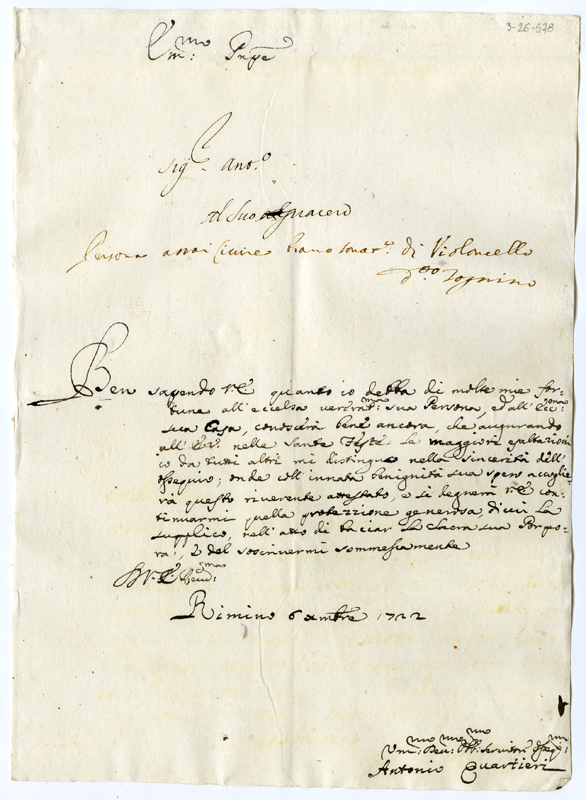 3-26-578
Em:mo Prnpe
Sig.r Ant.o
Al suo
Persona assai Civile bravo sonat.re di Violoncello
d.o Tognino
Ben sapendo V.E. quanto io debba di molte mie for-
tune all'eccelsa venerat:ma sua Persona, ed all'Ecc:ma
sua Casa, conoscerà bene ancora, che augurando
all'E.V. nelle sante Feste le maggiori esaltazioni
io da tutti altri mi distinguo nella sincerità dell'
ossequio; onde coll'innata benignità sua spero accoglie-
rà questo riverente attestato, e si degnerà V.E. con-
tinuarmi quella protezzione generosa, di cui La
supplico, nell'atto di baciar La Sacra sua Porpo-
ra, e del soscrivermi sommessamente
Di V.E. Rev:ma
Rimino 6 xmbre 1722
Um:mo Dev:mo Obb:mo servitore Osseq:mo
Antonio Quartieri